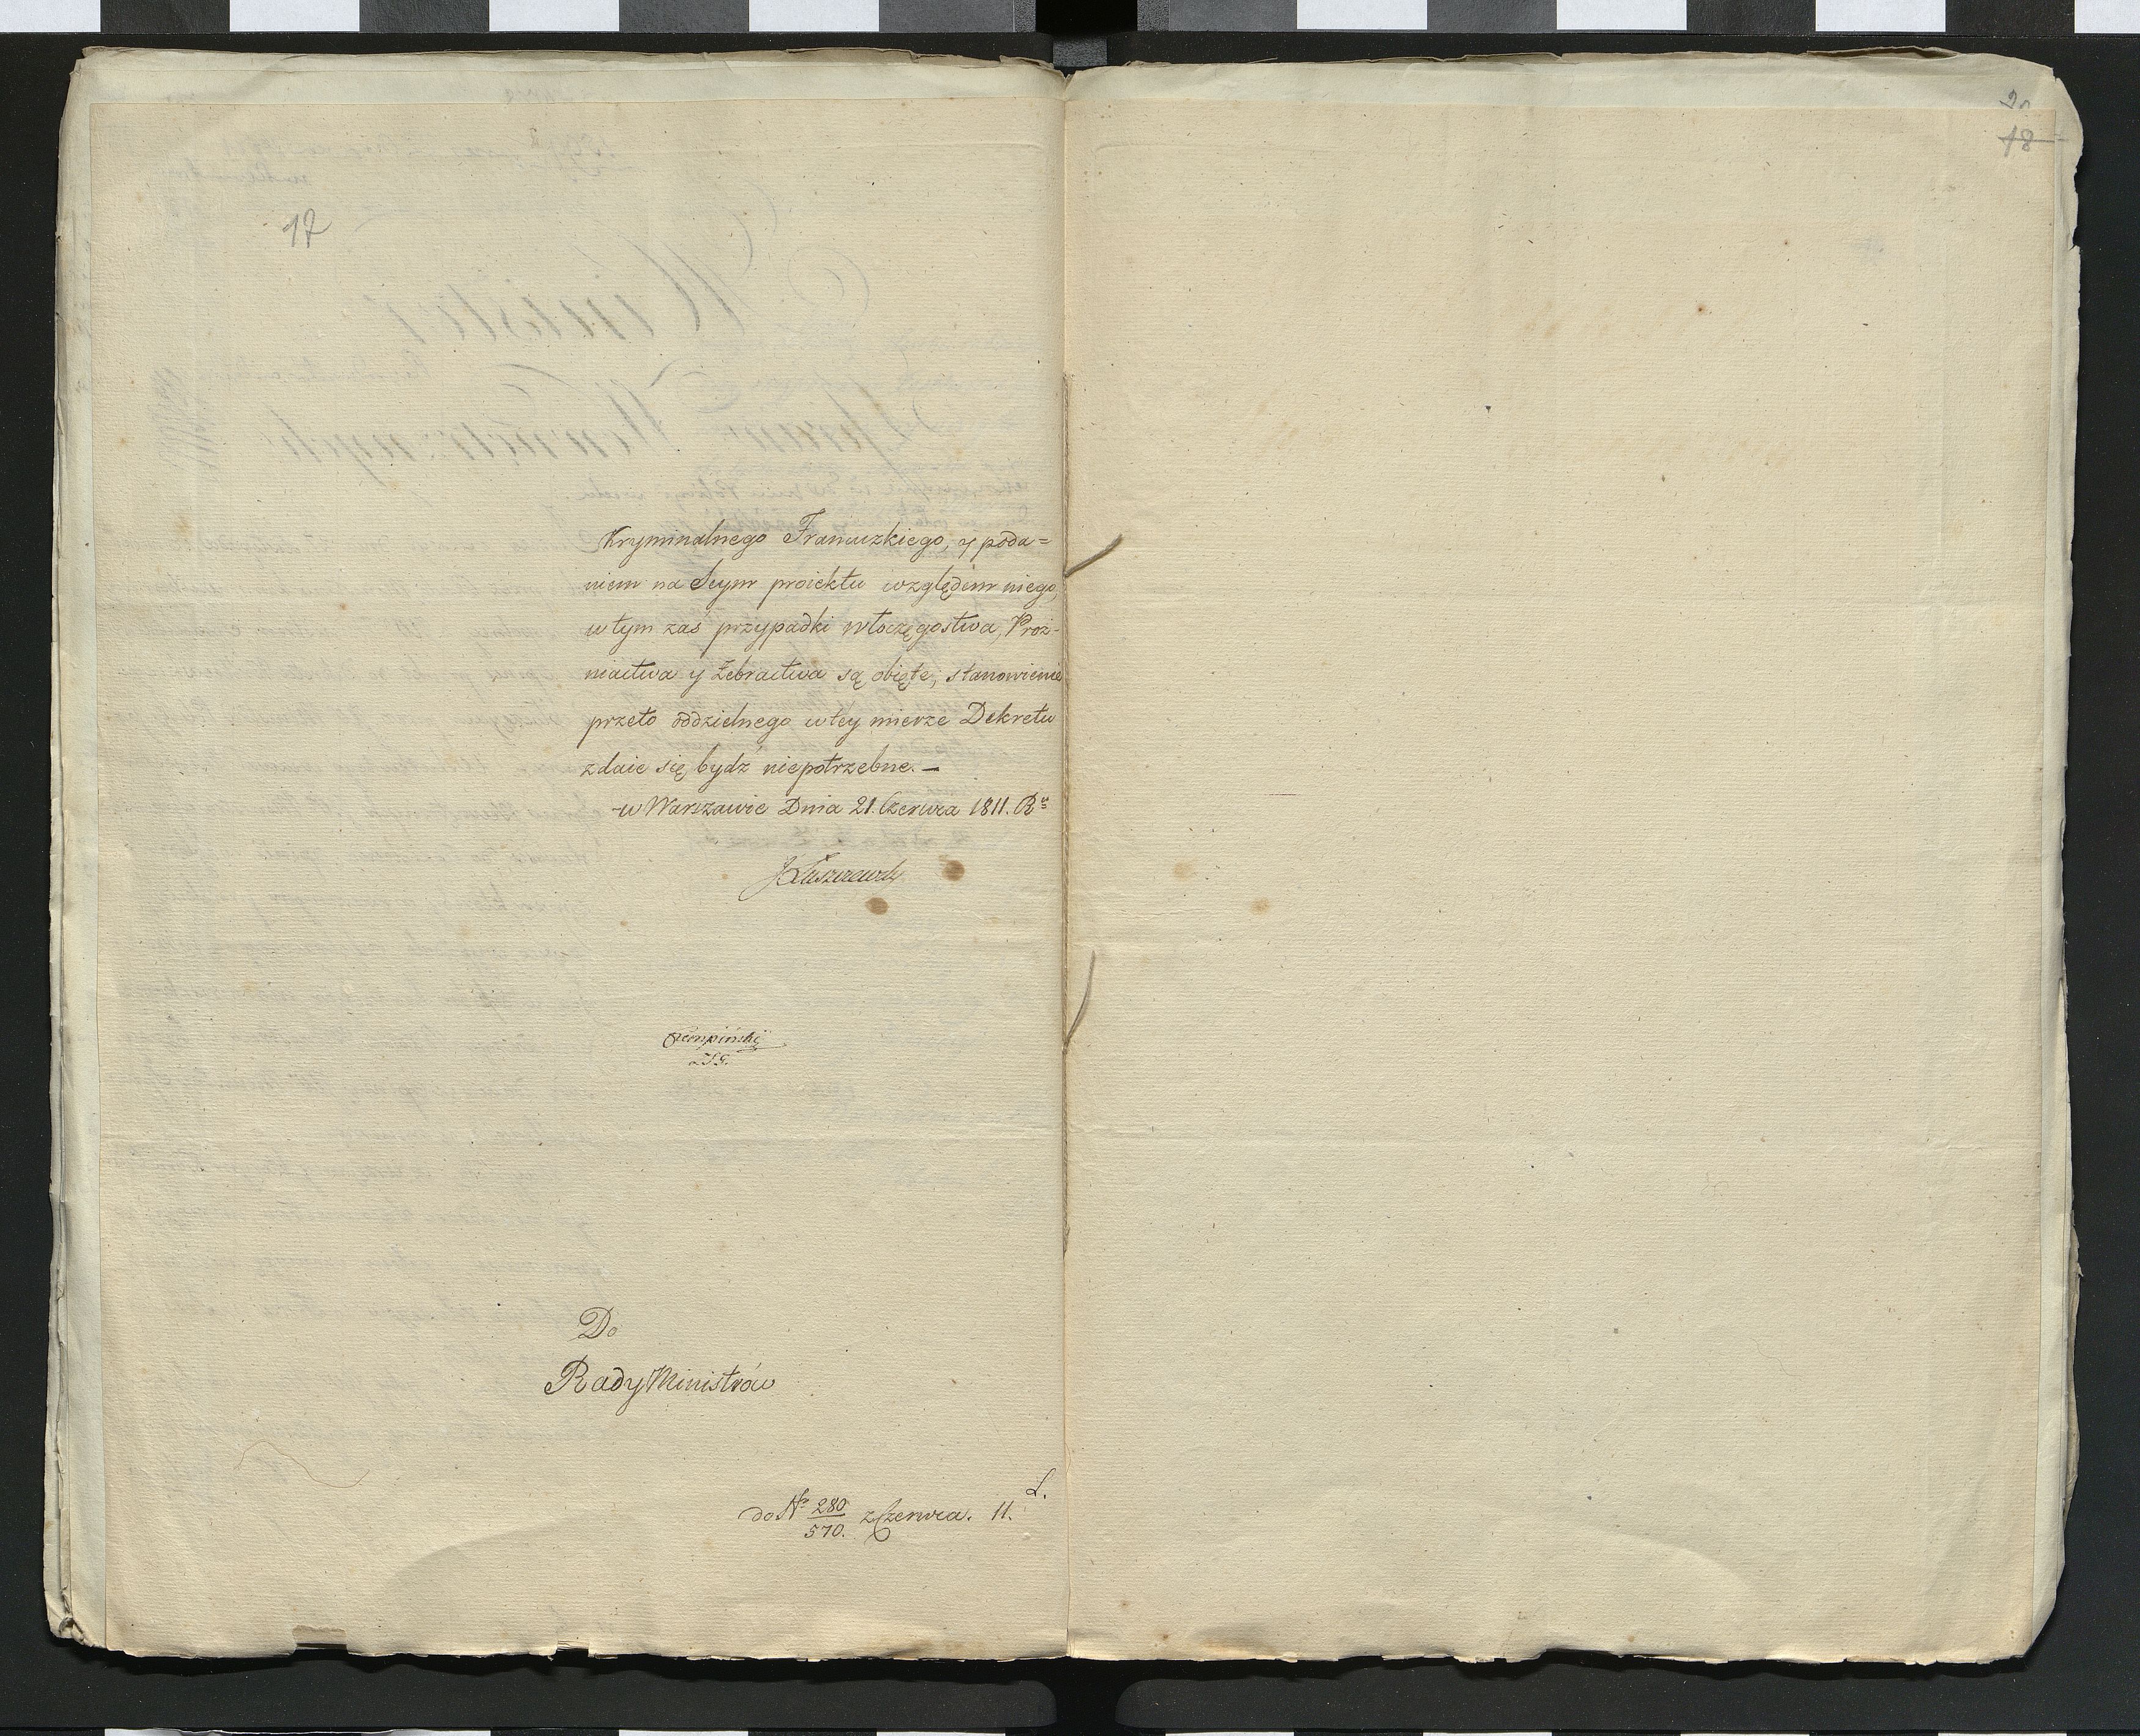 17
Kryminalnego Francuzkiego, y poda=
niem na Seym proiektu względem niego,
w tym zaś przypadki włóczęgostwa, Próż-
niactwa y żebractwa są obięte, stanowienie
przeto oddzielnego w tey mierze Dekretu
zdaie się bydź niepotrzebne. —
w Warszawie Dnia 21. Czerwca 1811. Ru
JŁuszczewski
Karpiński
Do
Rady Ministrów
L.
do No 280/570. z Czerwca. 11.
18